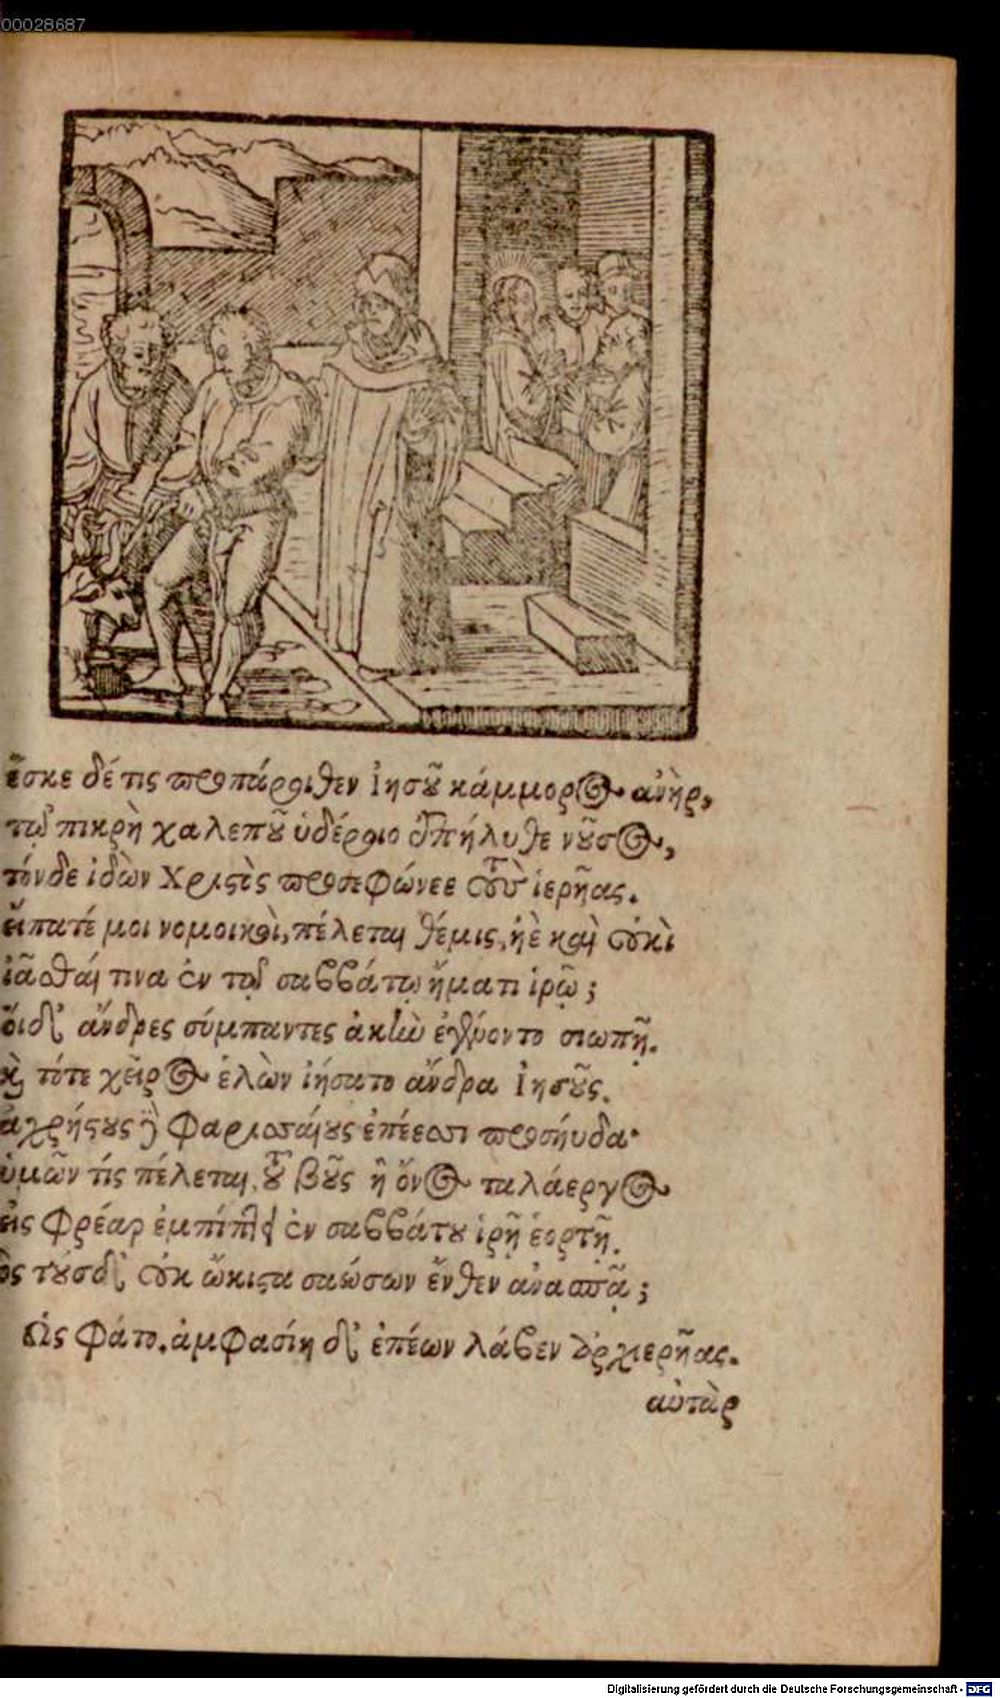 00028687
ἔσκε δέ τις προπάροιθεν Ἰησοῦ κάμμορος ἀνὴρ,
τῷ πικρὴ χαλεποῦ ὑδέροιο ἐπήλυθε νοῦσος,
τόνδε ἰδὼν Χριστὸς προσεφώνεε τοὺς ἱερῆας.
εἴπατέ μοι νομοικοὶ, πέλεται θέμις, ἠὲ καὶ οὐκὶ
ἰᾶσθαί τινα ἐν τῷ σαββάτῳ ἤματι ἱρῷ;
οἵδ' ἄνδρες σύμπαντες ἀκὴν ἐγένοντο σιωπῇ.
καὶ τότε χεῖρος ἑλὼν ἰήσατο ἄνδρα Ἰησοῦς.
ἀχρήστους δὲ Φαρισαίους ἐπέεσσι προσηύδα·
ὑμῶν τίς πέλεται, οὗ βοῦς ἢ ὄνος ταλάεργος
εἰς φρέαρ ἐμπίπτει ἐν σαββάτου ἱρῇ ἑορτῇ.
ὃς τούσδ' οὐκ ὤκιστα σαώσων ἔνθεν ἀνασπᾷ;
Ὣς φάτο. ἀμφασίη δ' ἐπέων λάβεν ἀρχιερῆας.
αὐτὰρ
Digitalisierung gefördert durch die Deutsche Forschungsgemeinschaft - DFG